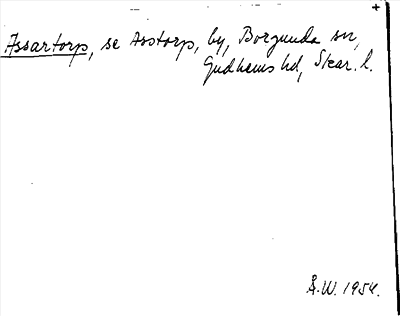 Assartorp, se Asstorp, by, Borgunda sn,
Gudhems hd, Skar. l.
Å.W. 1954.